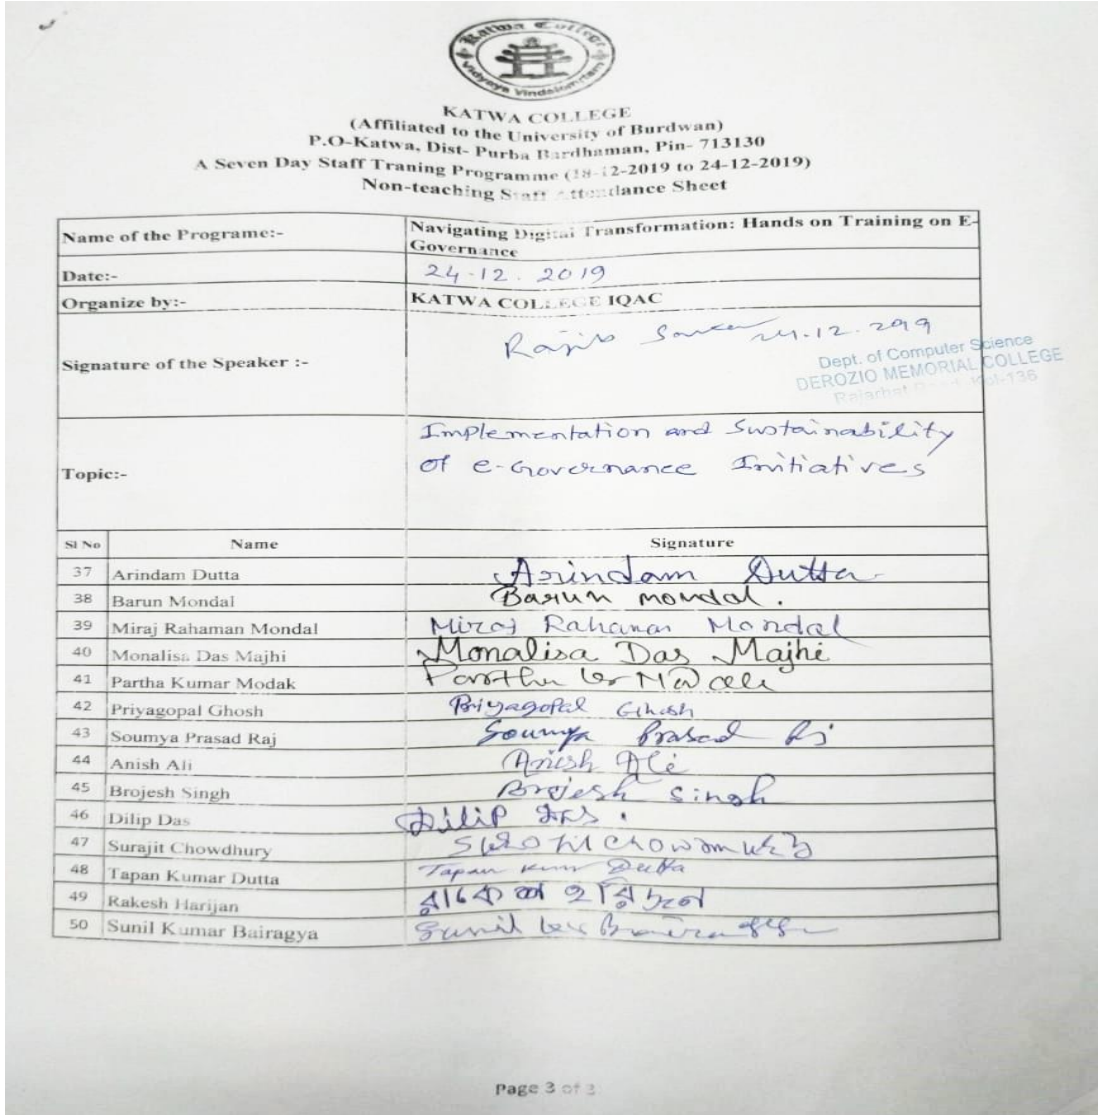 Katwa College
Vidyaya Vindatomritam
KATWA COLLEGE
(Affiliated to the University of Burdwan)
P.O-Katwa, Dist- Purba Bardhaman, Pin- 713130
A Seven Day Staff Traning Programme (18-12-2019 to 24-12-2019)
Non-teaching Staff Attendance Sheet
Name of the Programe:- Navigating Digital Transformation: Hands on Training on E-
Governance
Date:- 24.12.2019
Organize by:- KATWA COLLEGE IQAC
Signature of the Speaker :- Rajib Sarkar 24.12.2019
Dept. of Computer Science
DEROZIO MEMORIAL COLLEGE
Rajarhat Road, Kol-136
Topic:- Implementation and Sustainability
of e-Governance Initiatives
Sl No Name Signature
37 Arindam Dutta Arindam Dutta
38 Barun Mondal Barun Mondal.
39 Miraj Rahaman Mondal Miraj Rahaman Mondal
40 Monalisa Das Majhi Monalisa Das Majhi
41 Partha Kumar Modak Partha Kr Modak
42 Priyagopal Ghosh Priyagopal Ghosh
43 Soumya Prasad Raj Soumya Prasad Raj
44 Anish Ali Anish Ali
45 Brojesh Singh Brojesh Singh
46 Dilip Das Dilip Das.
47 Surajit Chowdhury Surajit Chowdhury
48 Tapan Kumar Dutta Tapan Kumar Dutta
49 Rakesh Harijan রাকেশ হরিজন
50 Sunil Kumar Bairagya Sunil Kr Bairagya
Page 3 of 3